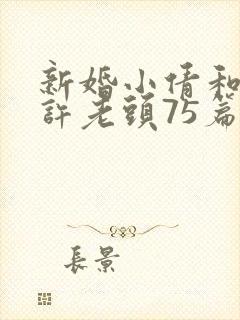 新婚小倩和
許老頭75篇
長景